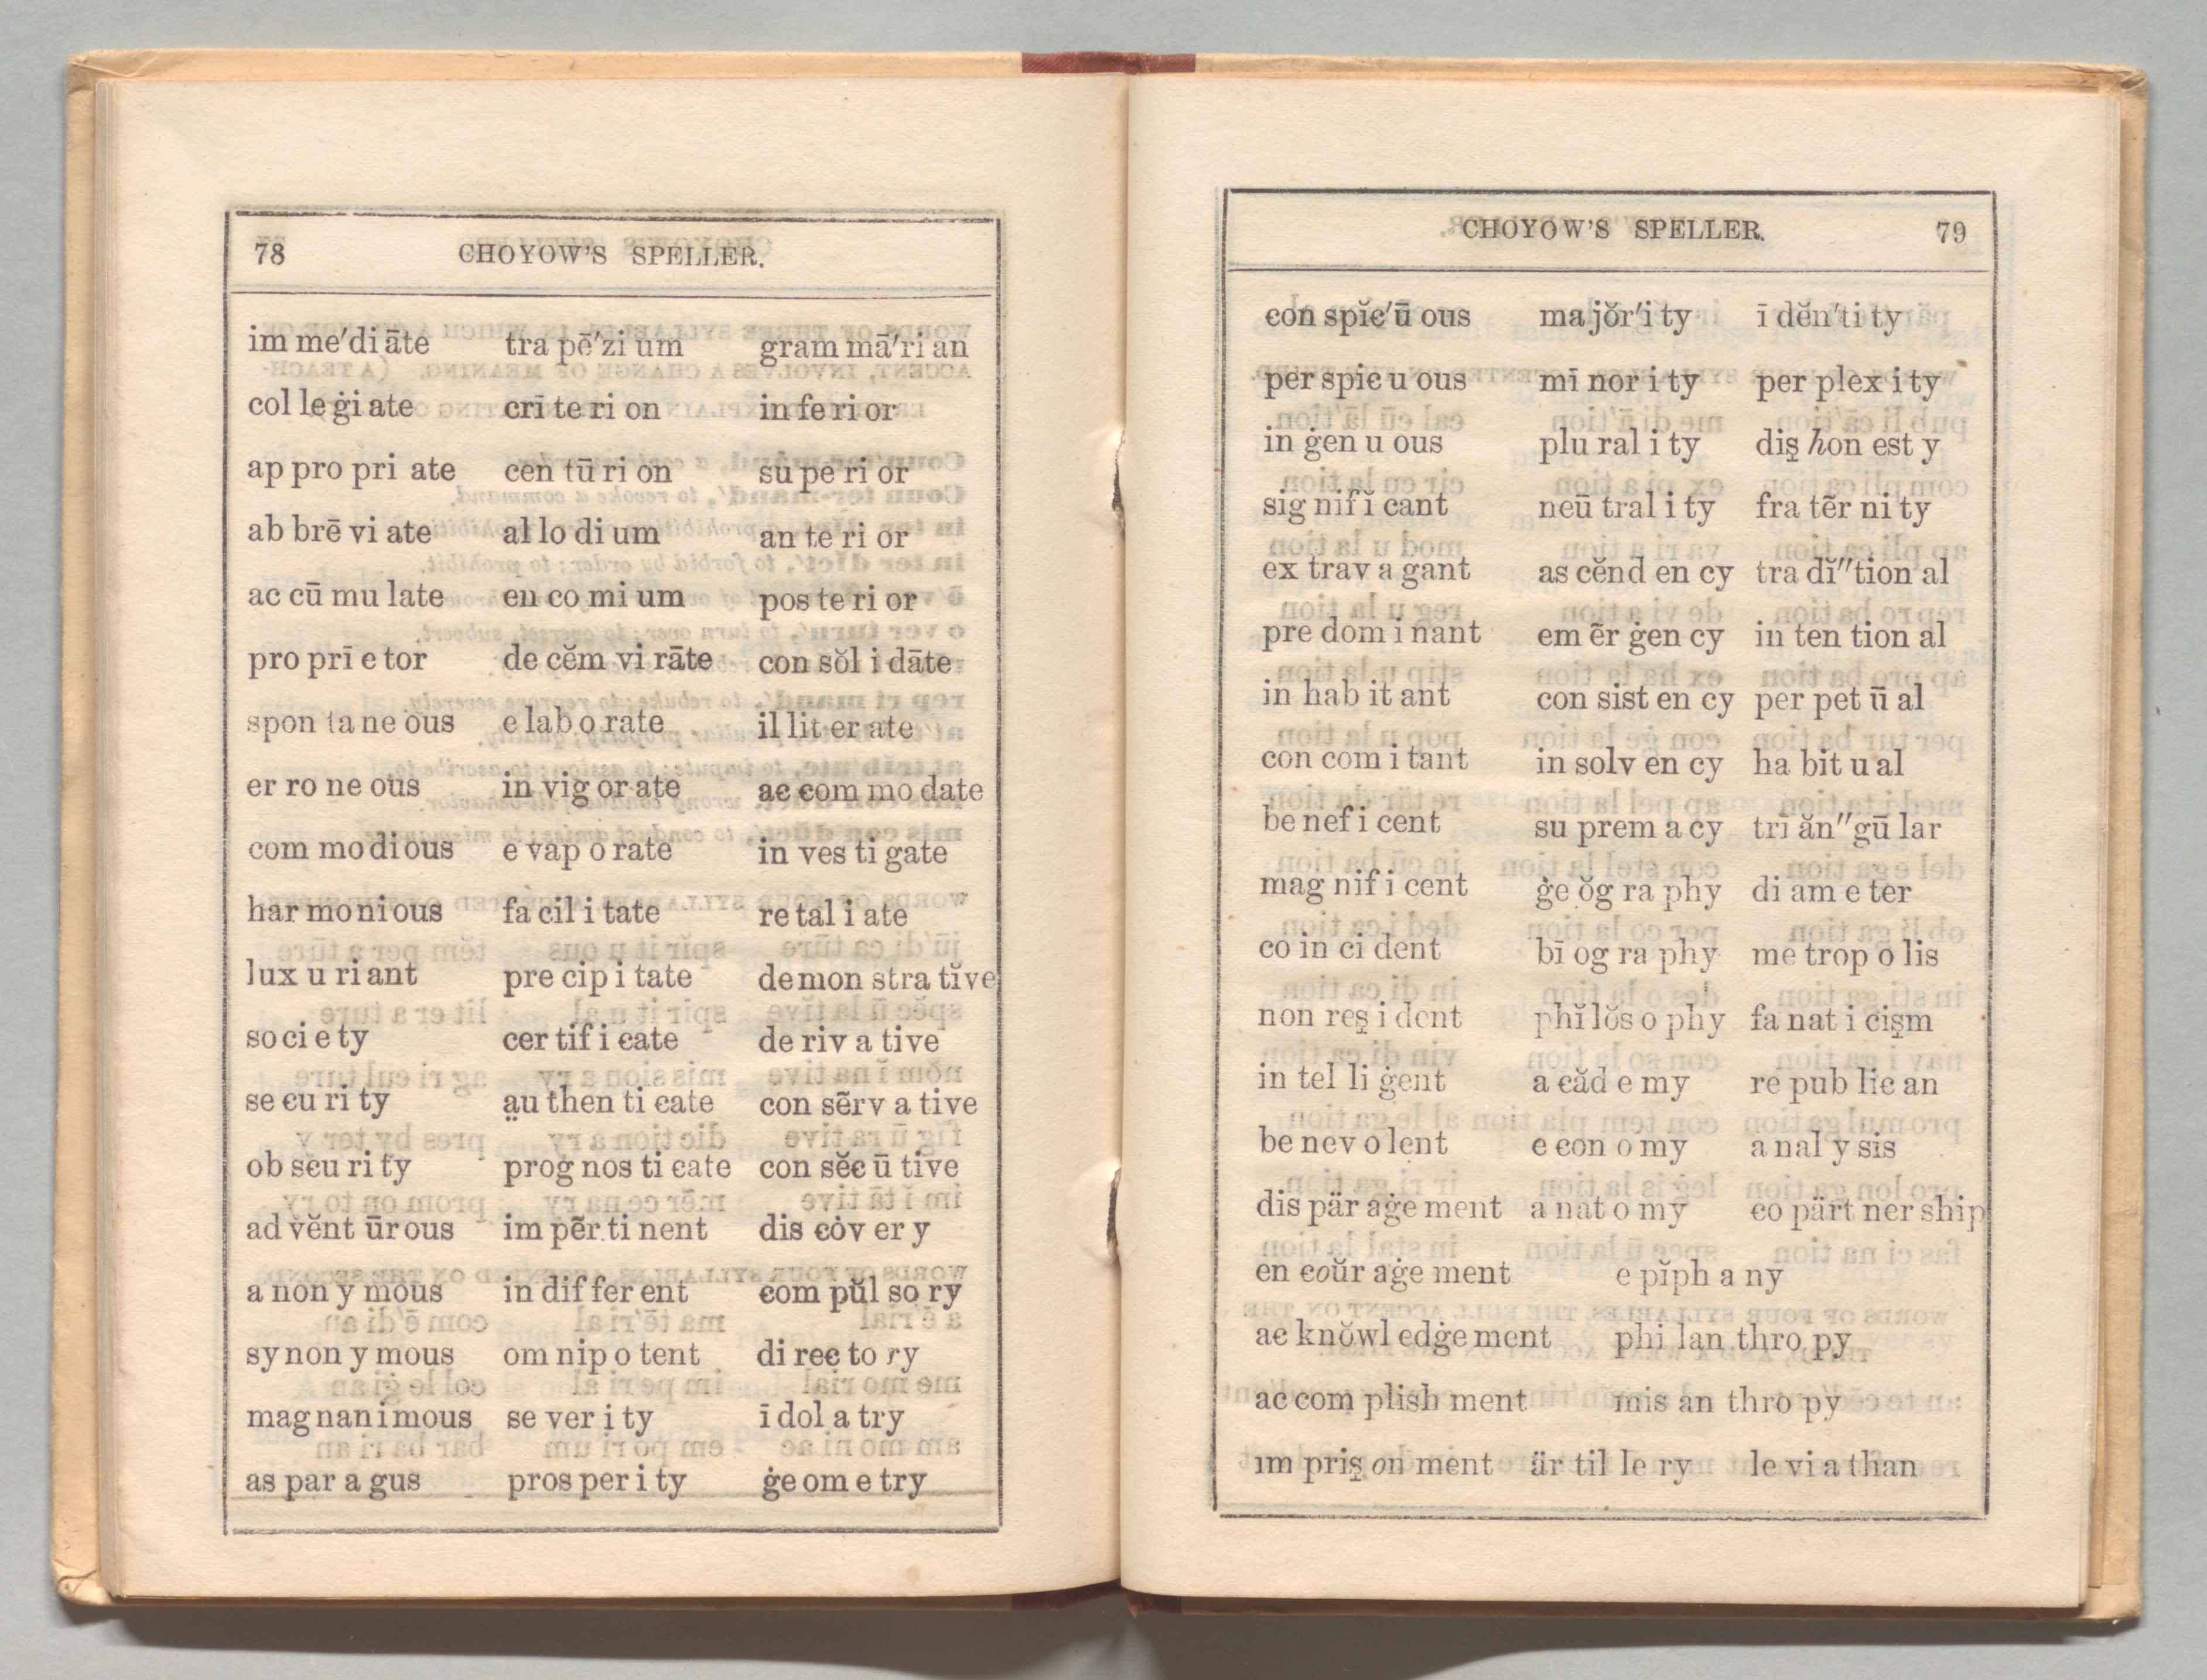 78 CHOYOW'S SPELLER.
im me′di āte tra pē′zi um gram mā′ri an
col le ġi ate crī te ri on in fe ri or
ap pro pri ate cen tū ri on su pe ri or
ab brē vi ate al lo di um an te ri or
ac cū mu late en co mi um pos te ri or
pro prī e tor de cĕm vi rāte con sŏl i dāte
spon ta ne ous e lab o rate il lit er ate
er ro ne ous in vig or ate ac com mo date
com mo di ous e vap o rate in ves ti gate
har mo ni ous fa cil i tate re tal i ate
lux u ri ant pre cip i tate de mon stra tĭve
so ci e ty cer tif i cate de riv a tive
se cu ri ty a̤u then ti cate con sẽrv a tive
ob scu ri ty prog nos ti cate con sĕc ū tive
ad vĕnt ūr ous im pẽr ti nent dis cȯv er y
a non y mous in dif fer ent com pŭl so ry
sy non y mous om nip o tent di rec to ry
mag nan i mous se ver i ty ī dol a try
as par a gus pros per i ty ġe om e try
CHOYOW'S SPELLER. 79
con spĭc′ū ous ma jŏr′i ty ī dĕn′ti ty
per spic u ous mī nor i ty per plex i ty
in ġen u ous plu ral i ty diş hon est y
sig nif ĭ cant neū tral i ty fra tẽr ni ty
ex trav a gant as cĕnd en cy tra dĭ″tion al
pre dom i nant em ẽr ġen cy in ten tion al
in hab it ant con sist en cy per pet ū al
con com i tant in solv en cy ha bit u al
be nef i cent su prem a cy trī ăn″gū lar
mag nif i cent ġe ŏg ra phy di am e ter
co in ci dent bī og ra phy me trop o lis
non reş i dent phĭ lŏs o phy fa nat i cişm
in tel li ġent a căd e my re pub lic an
be nev o lent e con o my a nal y sis
dis pär aġe ment a nat o my co pärt ner ship
en coŭr aġe ment e pĭph a ny
ac knŏwl edġe ment phi lan thro py
ac com plish ment mis an thro py
im priş on ment är til le ry le vi a than